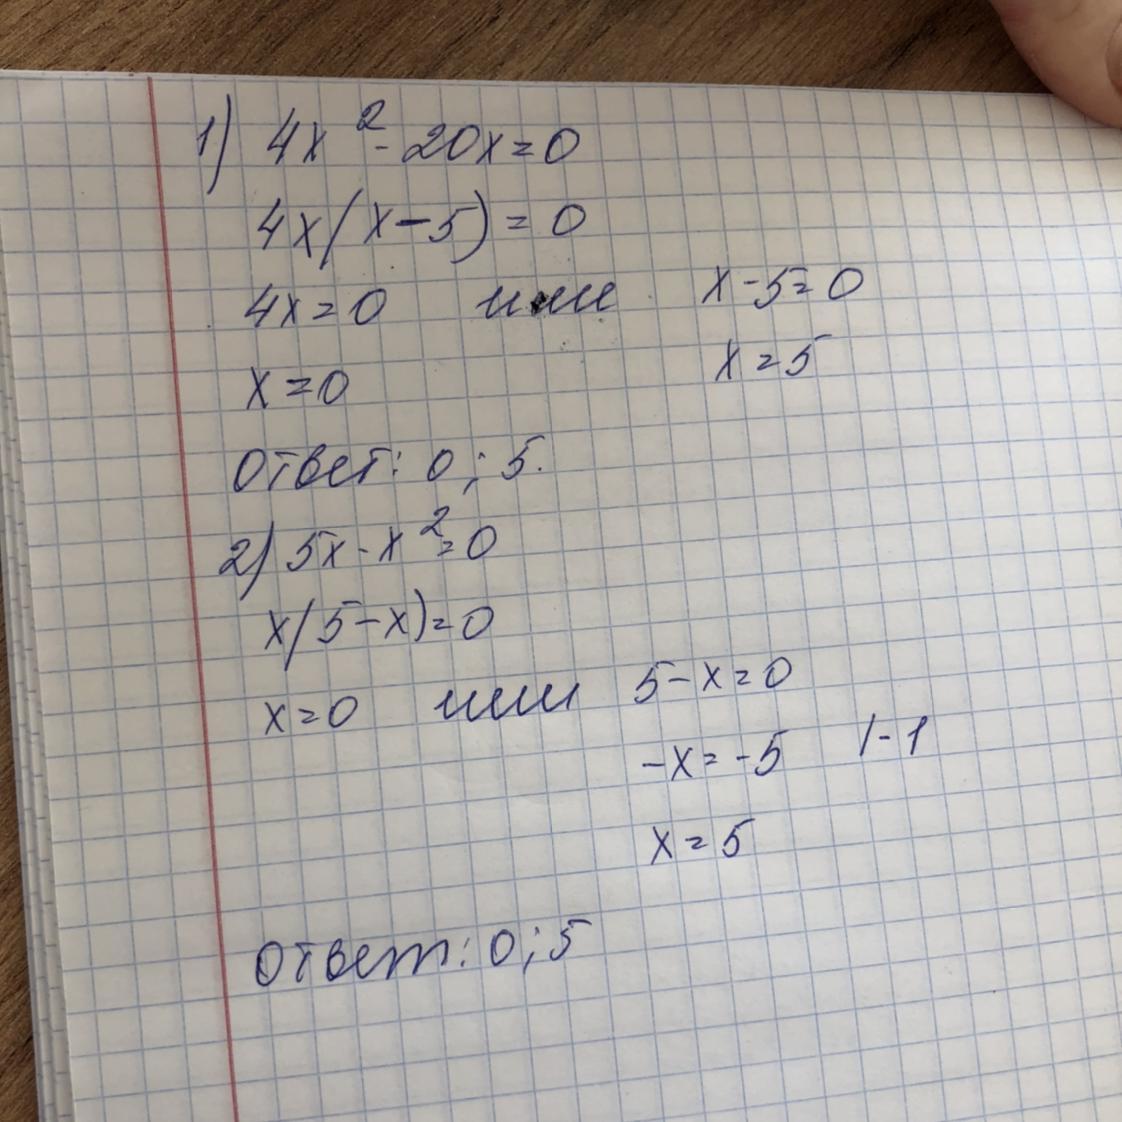 1) 4x² - 20x = 0
4x(x - 5) = 0
4x = 0 или x - 5 = 0
x = 0 x = 5
Ответ: 0; 5.
2) 5x - x² = 0
x(5 - x) = 0
x = 0 или 5 - x = 0
-x = -5 | -1
x = 5
Ответ: 0; 5